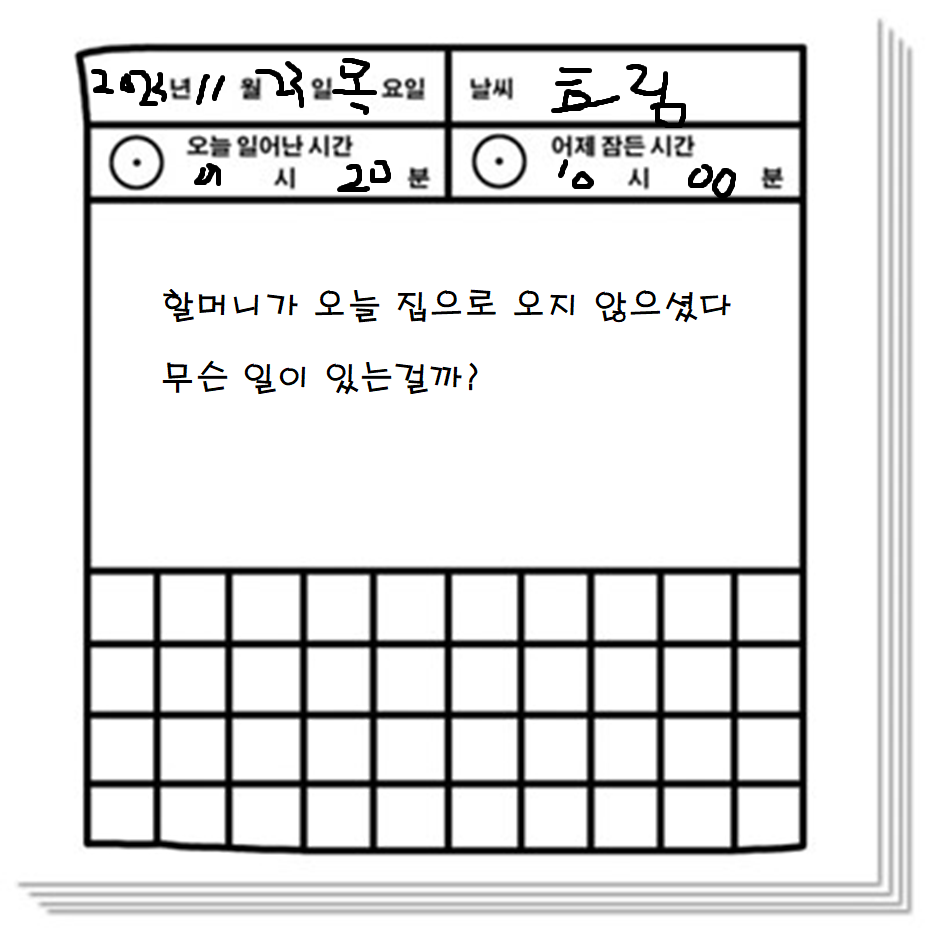 2023년 11월 23일 목요일 날씨 흐림
오늘 일어난 시간 어제 잠든 시간
시 20분 10시 00분
할머니가 오늘 집으로 오지 않으셨다
무슨 일이 있는걸까?